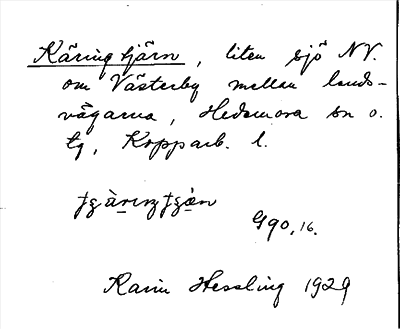 Käringtjärn, liten sjö NV.
om Västerby mellan lands-
vägarna, Hedemora sn o.
tg, Kopparb. l.
G90,16.
Karin Hessling 1929